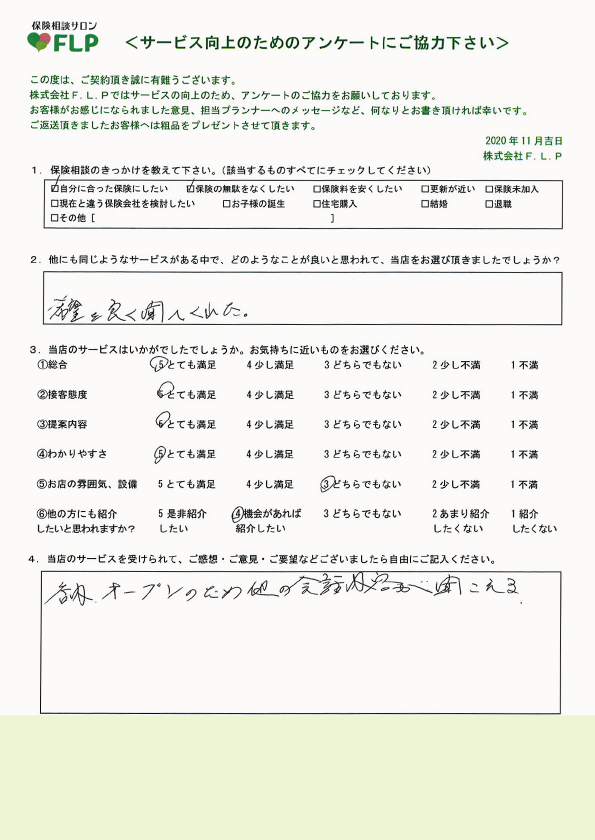 保険相談サロン
FLP
＜サービス向上のためのアンケートにご協力下さい＞
この度は、ご契約頂き誠に有難うございます。
株式会社Ｆ.Ｌ.Ｐではサービスの向上のため、アンケートのご協力をお願いしております。
お客様がお感じになられました意見、担当プランナーへのメッセージなど、何なりとお書き頂ければ幸いです。
ご返送頂きましたお客様へは粗品をプレゼントさせて頂きます。
2020 年 11 月吉日
株式会社Ｆ.Ｌ.Ｐ
１．保険相談のきっかけを教えて下さい。（該当するものすべてにチェックしてください）
☑自分に合った保険にしたい ☑保険の無駄をなくしたい □保険料を安くしたい □更新が近い □保険未加入
□現在と違う保険会社を検討したい □お子様の誕生 □住宅購入 □結婚 □退職
□その他 [ ]
２．他にも同じようなサービスがある中で、どのようなことが良いと思われて、当店をお選び頂きましたでしょうか？
希望を良く聞いてくれた。
３．当店のサービスはいかがでしたでしょうか。お気持ちに近いものをお選びください。
①総合 5 とても満足 4 少し満足 3 どちらでもない 2 少し不満 1 不満
②接客態度 5 とても満足 4 少し満足 3 どちらでもない 2 少し不満 1 不満
③提案内容 5 とても満足 4 少し満足 3 どちらでもない 2 少し不満 1 不満
④わかりやすさ 5 とても満足 4 少し満足 3 どちらでもない 2 少し不満 1 不満
⑤お店の雰囲気、設備 5 とても満足 4 少し満足 3 どちらでもない 2 少し不満 1 不満
⑥他の方にも紹介 5 是非紹介 4 機会があれば 3 どちらでもない 2 あまり紹介 1 紹介
したいと思われますか？ したい 紹介したい したくない したくない
４．当店のサービスを受けられて、ご感想・ご意見・ご要望などございましたら自由にご記入ください。
オープンのため他の会話内容が聞こえる.